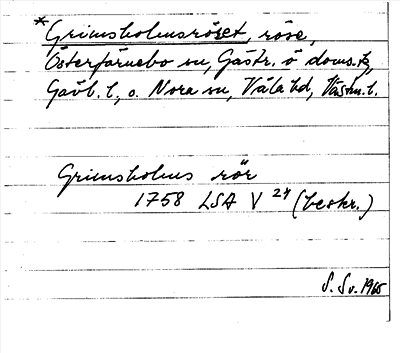 *Grimsholmsröset, röse,
Österfärnebo sn, Gästr. ö doms.,
Gävl. l., o. Nora sn, Våla hd, Västm. l.
Grimsholms rör
1758 LSA V 24 (beskr.)
S. Sv. 1965